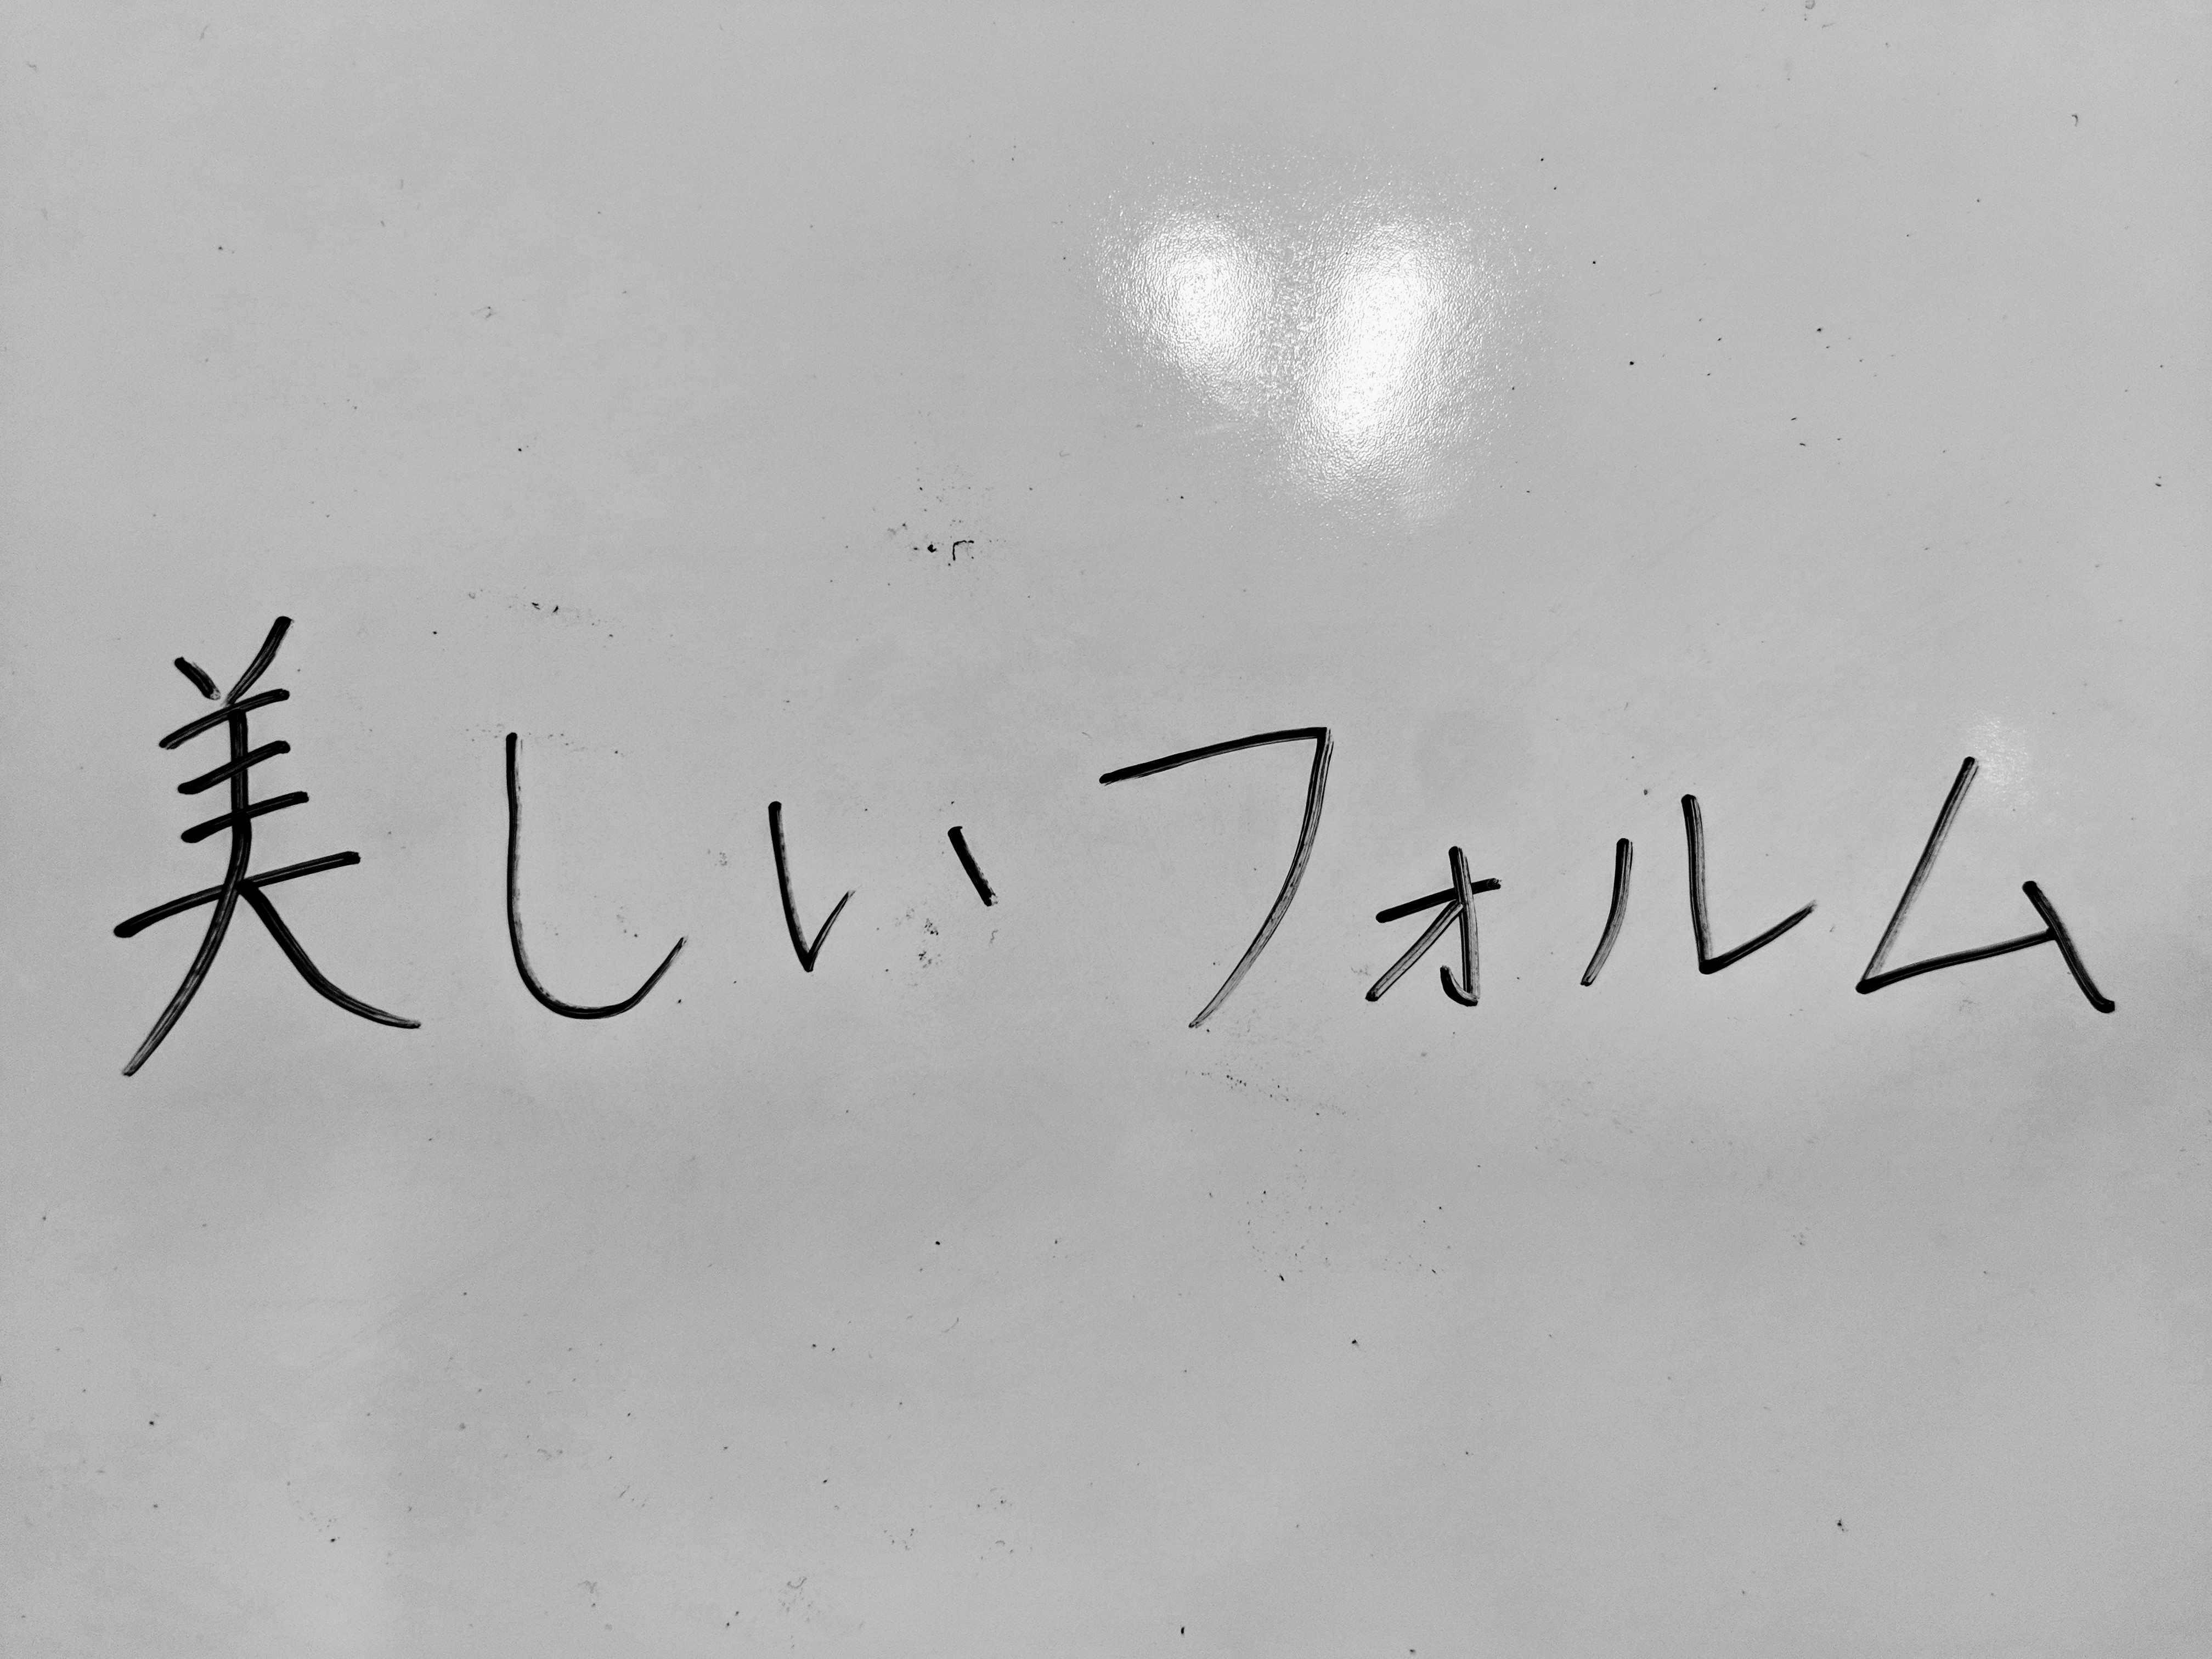 美しいフォルム